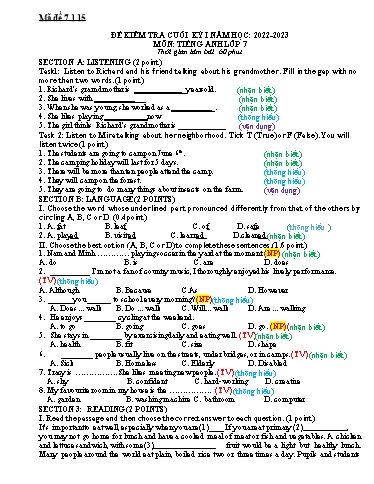 Mã đề 7.1.15
ĐỀ KIỂM TRA CUỐI KỲ I NĂM HỌC: 2022-2023
MÔN: TIẾNG ANH LỚP 7
Thời gian làm bài: 60 phút
SECTION A: LISTENING (2 point)
Task1: Listen to Richard and his friend talking about his grandmother. Fill in the gap with no
more than two words.(1 point)
1. Richard's grandmother is ____________ years old. (nhận biết)
2. She lives with ____________ (nhận biết)
3. When she was young she worked as a __________. (nhận biết)
4. She likes playing __________ now (thông hiểu)
5. The girl thinks Richard's grandmother is __________ (vận dụng)
Task 2: Listen to Mira talking about her neighborhood. Tick T (True) or F (False).You will
listen twice(1 point)
1. The students are going to camp on June 6th. (nhận biết)
2. The camping holiday will last for 5 days. (nhận biết)
3. There will be more than ten people attend the camp. (thông hiểu)
4. They will camp on the forest. (thông hiểu)
5. They are going to do many things about insects on the farm. (vận dụng)
SECTION B: LANGUAGE(2 POINTS)
I. Choose the word whose underlined part pronounced differently from that of the others by
circling A, B, C or D. (0.4 point)
1. A. fat B. leaf C. of D. safe (thông hiểu )
2. A. played B. visited C. learned D.cleaned(nhận biết)
II. Choose the best option (A, B, C or D)to complete these sentences.(1.6 point)
1. Nam and Minh ………… playing soccer in the yard at the moment (NP) (nhận biết)
A. do B. is C. am D. does
2. __________ I'm not a fan of county music, I thoroughly enjoyed his lively performance.
(TV)(thông hiểu)
A. Although B. Because C.As D. However
3. ______you______ to school every morning?(NP)(thông hiểu)
A. Does ... walk B. Do ... walk C. Will... walk D. Are ... walking
4. He enjoys ________ cycling at the weekend.
A. to go B. going C. goes D. go. (NP)(nhận biết)
5. She stays in _______ by exercising daily and eating well. (TV)(nhận biết)
A. health B. fit C. size D.shape
6. __________ people usually live on the streets, under bridges, or in camps.(TV)(nhận biết)
A. Sick B. Homeless C. Elderly D. Disabled
7. Tracy is ………………She likes meeting new people. (TV)(thông hiểu)
A. shy B. confident C. hard- working D. creative
8. My favourite room in my house is the ……………… (TV)(thông hiểu)
A. garden B. washing machine C. bathroom D. computer
SECTION 3: READING (2 POINTS)
I. Read the passage and then choose the correct answer to each question. (1 point)
It's important to eat well, especially when you are (1)____ If you are at primary (2)__________,
you may not go home for lunch and have a cooked meal of meat or fish and vegetables. A chicken
and lettuce sandwich, with some (3)______________ fruit would be a light but healthy lunch.
Many people around the world eat plain, boiled rice two or three times a day. Pupils and students